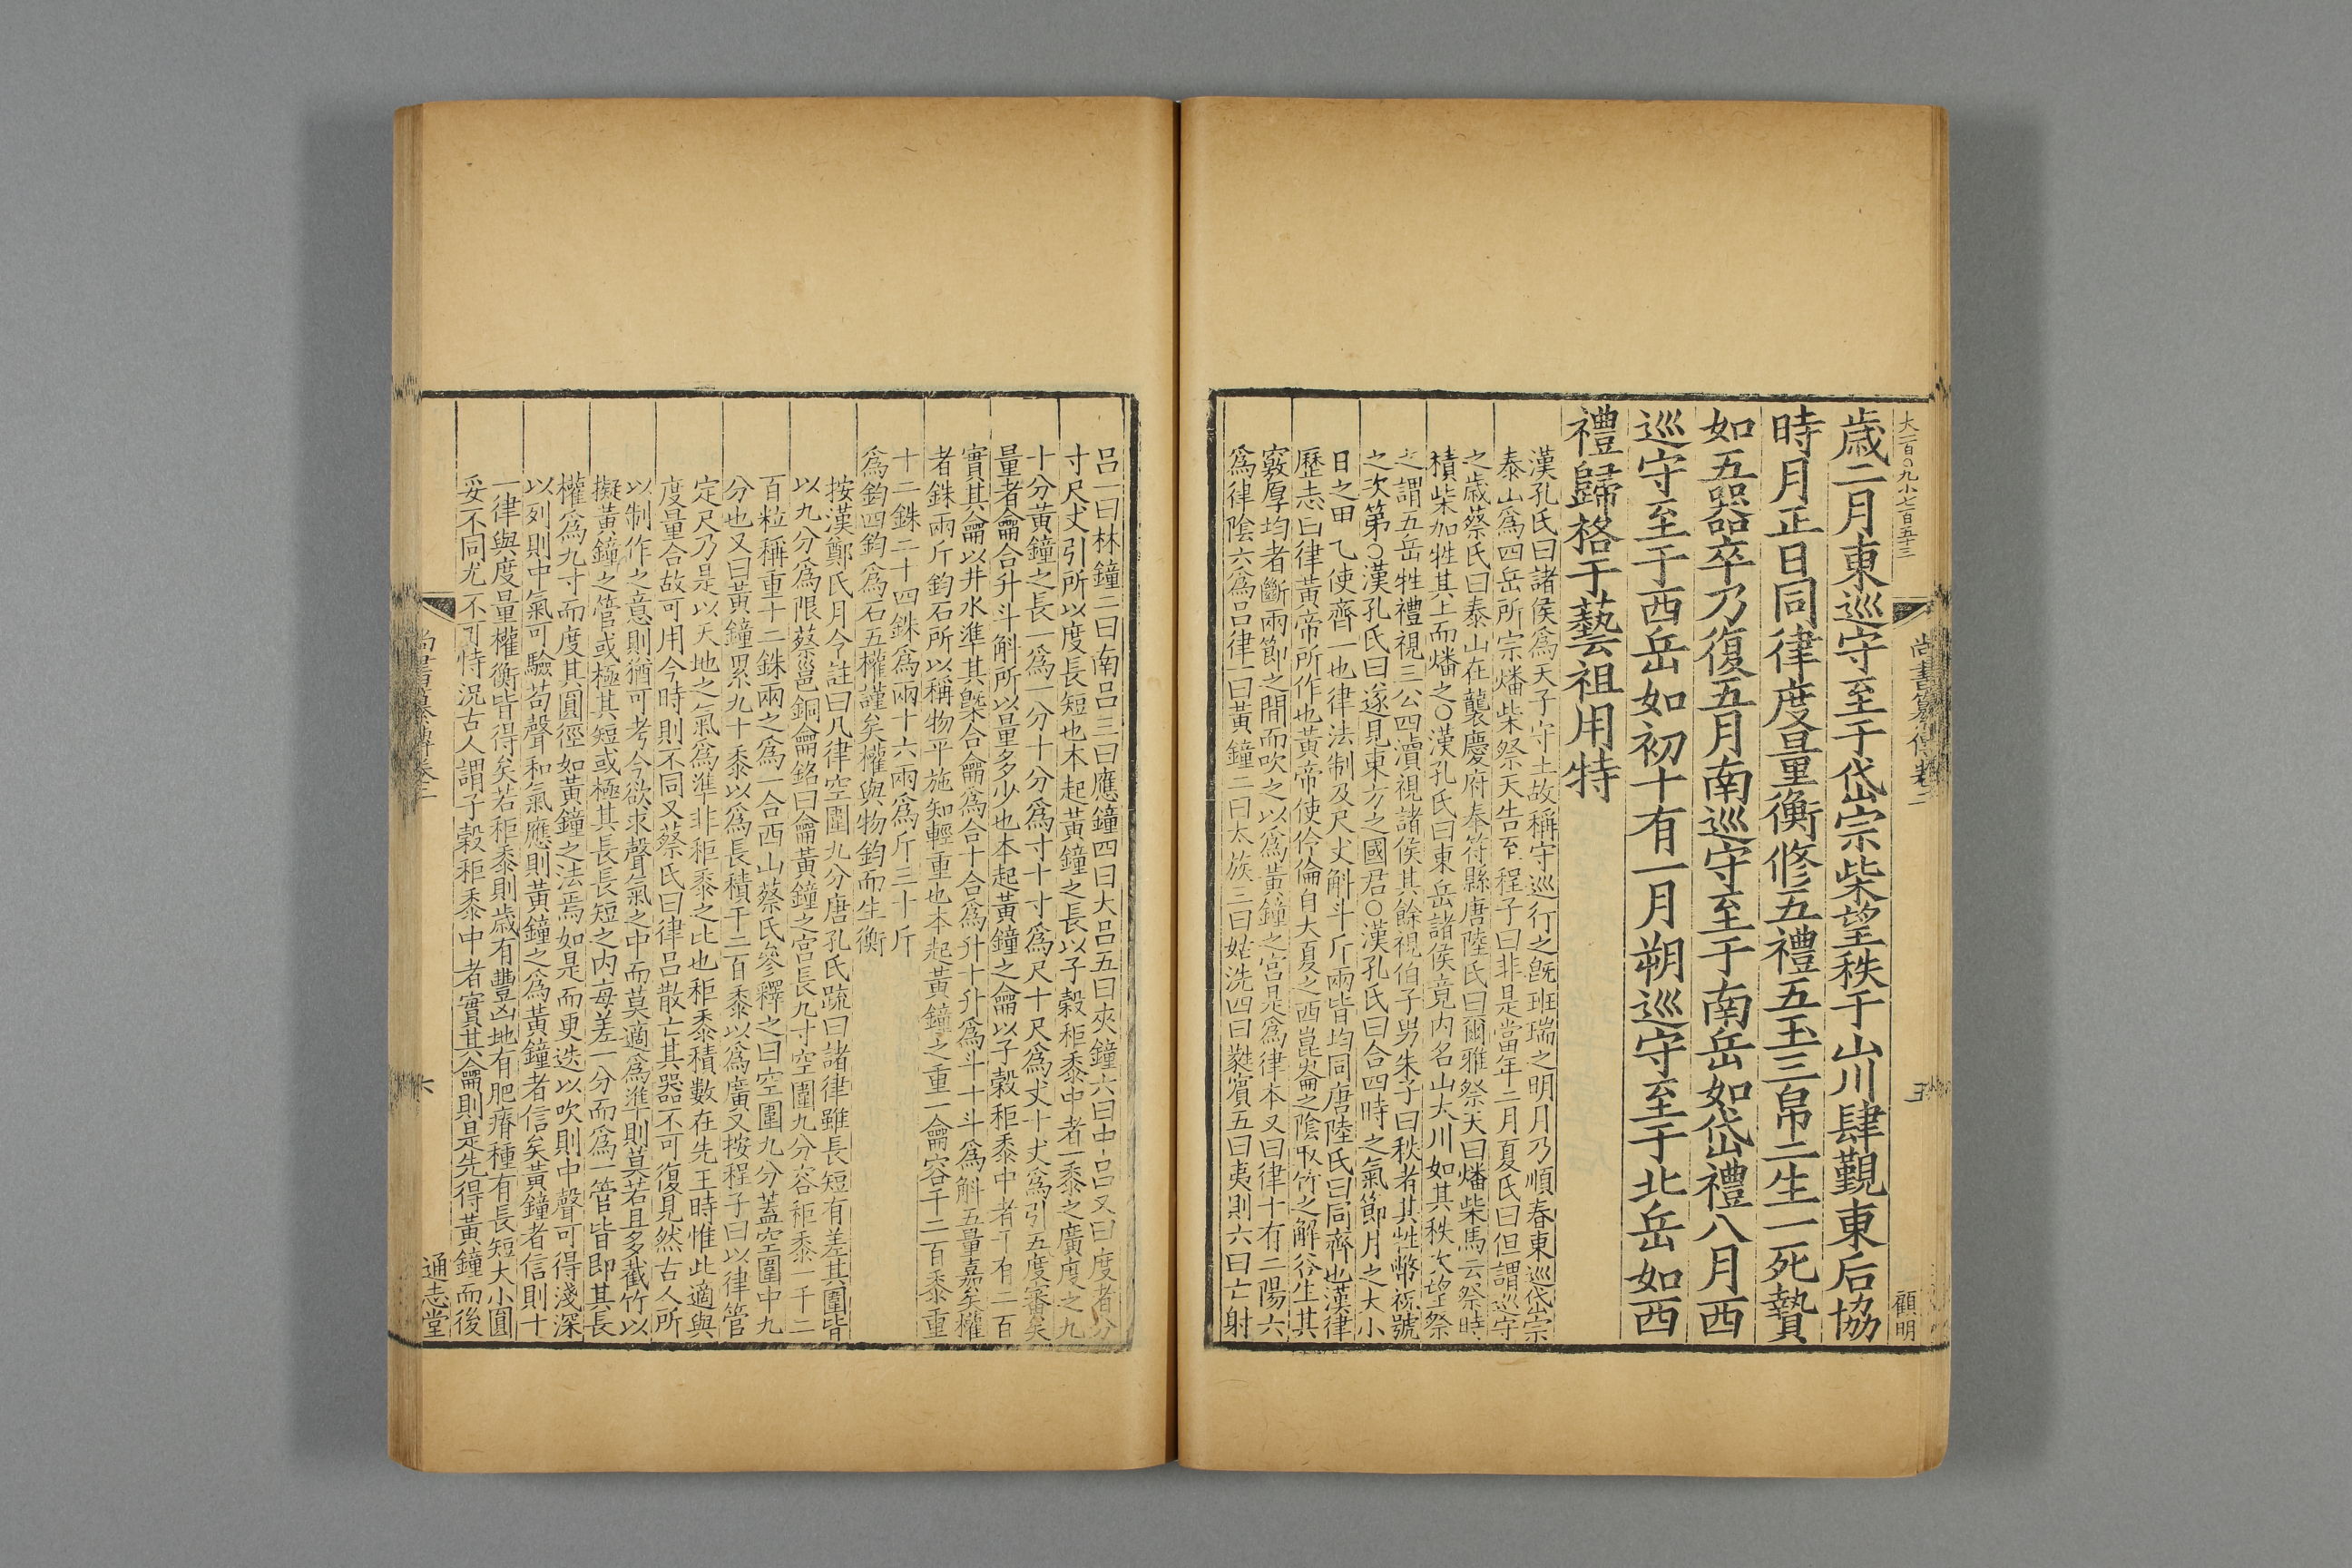 大一百〇九小七百五十三
尚書纂傳卷二
五
顧明
歲二月東巡守至于岱宗柴望秩于山川肆覲東后協
時月正日同律度量衡修五禮五玉三帛二生一死贄
如五器卒乃復五月南巡守至于南岳如岱禮八月西
巡守至于西岳如初十有一月朔巡守至于北岳如西
禮歸格于藝祖用特
漢孔氏曰諸侯爲天子守土故稱守巡行之旣班瑞之明月乃順春東巡岱宗
泰山爲四岳所宗燔柴祭天告至程子曰非是當年二月夏氏曰但謂巡守
之歲蔡氏曰泰山在襲慶府奉符縣唐陸氏曰爾雅祭天曰燔柴馬云祭時
積柴加牲其上而燔之〇漢孔氏曰東岳諸侯竟內名山大川如其秩次望祭
之謂五岳牲禮視三公四瀆視諸侯其餘視伯子男朱子曰秩者其牲幣祝號
之次第〇漢孔氏曰遂見東方之國君〇漢孔氏曰合四時之氣節月之大小
日之甲乙使齊一也律法制及尺丈斛斗斤兩皆均同唐陸氏曰同齊也漢律
歷志曰律黃帝所作也黃帝使伶倫自大夏之西崑崙之陰取竹之解谷生其
竅厚均者斷兩節之間而吹之以爲黃鐘之宮是爲律本又曰律十有二陽六
爲律陰六爲呂律一曰黃鐘二曰太族三曰姑洗四曰蕤賓五曰夷則六曰亡射
呂一曰林鐘二曰南呂三曰應鐘四曰大呂五曰夾鐘六曰中呂又曰度者分
寸尺丈引所以度長短也本起黃鐘之長以子穀秬黍中者一黍之廣度之九
十分黃鐘之長一爲一分十分爲寸十寸爲尺十尺爲丈十丈爲引五度審矣
量者龠合升斗斛所以量多少也本起黃鐘之龠以子穀秬黍中者千有二百
實其龠以井水準其槩合龠爲合十合爲升十升爲斗十斗爲斛五量嘉矣權
者銖兩斤鈞石所以稱物平施知輕重也本起黃鐘之重一龠容千二百黍重
十二銖二十四銖爲兩十六兩爲斤三十斤
爲鈞四鈞爲石五權謹矣權與物鈞而生衡
按漢鄭氏月令註曰凡律空圍九分唐孔氏疏曰諸律雖長短有差其圍皆
以九分爲限蔡邕銅龠銘曰龠黃鐘之宮長九寸空圍九分容秬黍一千二
百粒稱重十二銖兩之爲一合西山蔡氏參釋之曰空圍九分蓋空圍中九
分也又曰黃鐘累九十黍以爲長積千二百黍以爲廣又按程子曰以律管
定尺乃是以天地之氣爲準非秬黍之比也秬黍積數在先王時惟此適與
度量合故可用今時則不同又蔡氏曰律呂散亡其器不可復見然古人所
以制作之意則猶可考今欲求聲氣之中而莫適爲準則莫若且多截竹以
擬黃鐘之管或極其短或極其長長短之內每差一分而爲一管皆即其長
權爲九寸而度其圓徑如黃鐘之法焉如是而更迭以吹則中聲可得淺深
以列則中氣可驗苟聲和氣應則黃鐘之爲黃鐘者信矣黃鐘者信則十
一律與度量權衡皆得矣若秬黍則歲有豐凶地有肥瘠種有長短大小圓
妥不同尤不可恃況古人謂子穀秬黍中者實其龠則是先得黃鐘而後
尚書纂傳卷二
六
通志堂